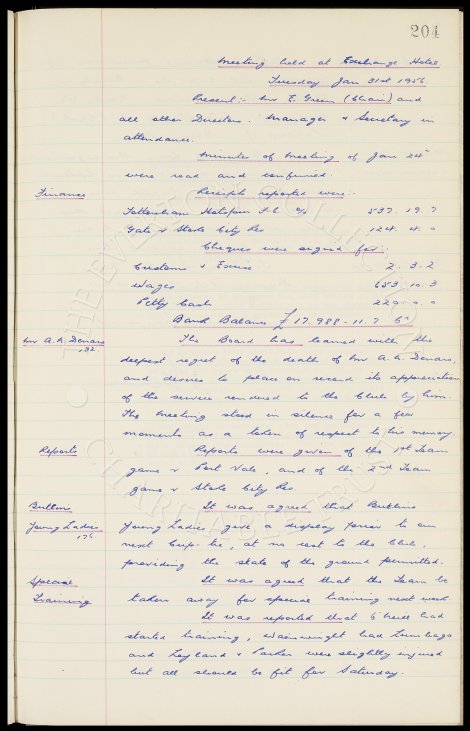 204
Meeting held at Exchange Hotel
Tuesday Jan 31st 1956
Present:- Mr E. Green (Chair) and
all other Directors. Manager & Secretary in
attendance.
Minutes of Meeting of Jan 24th
were read and confirmed.
Finance Receipts reported were:-
Tottenham Hotspur F.C. a/c 537. 19. 7
Gate v Stoke City Res 124. 4. 0
Cheques were signed for:-
Customs & Excise 2. 3. 2
Wages 653. 10. 3
Petty Cash 220. 0. 0
Bank Balance £17.988.11.7
Mr A. A. Denaro The Board has learned with the
132 deepest regret of the death of Mr A. A. Denaro,
and desires to place on record its appreciation
of the service rendered to the Club by him.
The meeting stood in silence for a few
moments as a token of respect to his memory.
Reports Reports were given of the 1st Team
game v Port Vale, and of the 2nd Team
game v Stoke City Res
Butlins It was agreed that Butlins
Young Ladies Young Ladies give a display prior to our
176 next Cup tie, at no cost to the Club,
providing the state of the ground permitted.
Special It was agreed that the Team be
Training taken away for special training next week.
It was reported that O'Neill had
started training, Wainwright had lumbago
and Leyland & Parker were slightly injured
but all should be fit for Saturday.
THE EVERTON COLLECTION
CHARITABLE TRUST